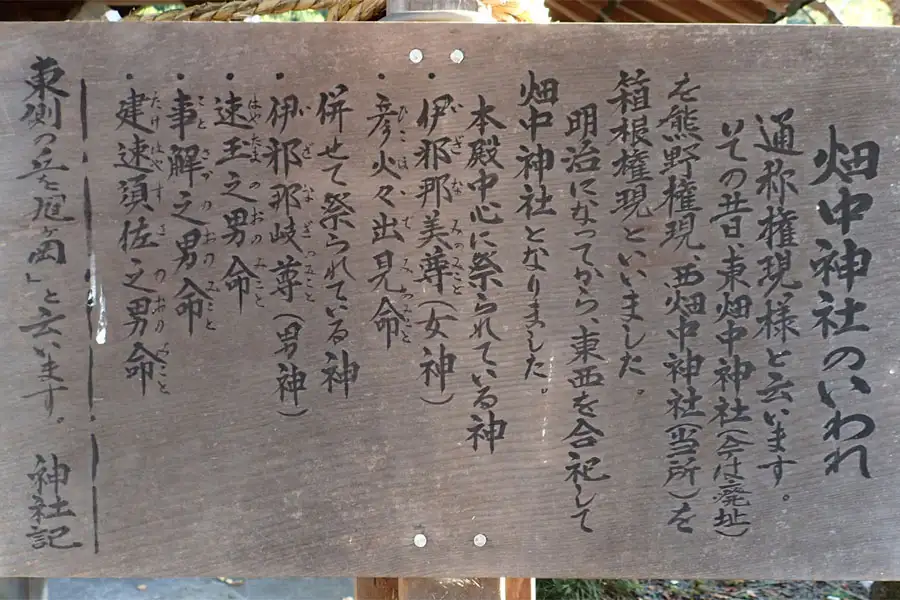 畑中神社のいわれ
通称権現様と云います。
その昔、東畑中神社(今は廃址)
を熊野権現、西畑中神社(当所)を
箱根権現といいました。
明治になってから、東西を合祀して
畑中神社となりました。
本殿中心に祭られている神
・伊邪那美尊(女神)
・彦火々出見命
併せて祭られている神
・伊邪那岐尊(男神)
・速玉之男命
・事解之男命
・建速須佐之男命
東側の丘を
と云います。 神社記